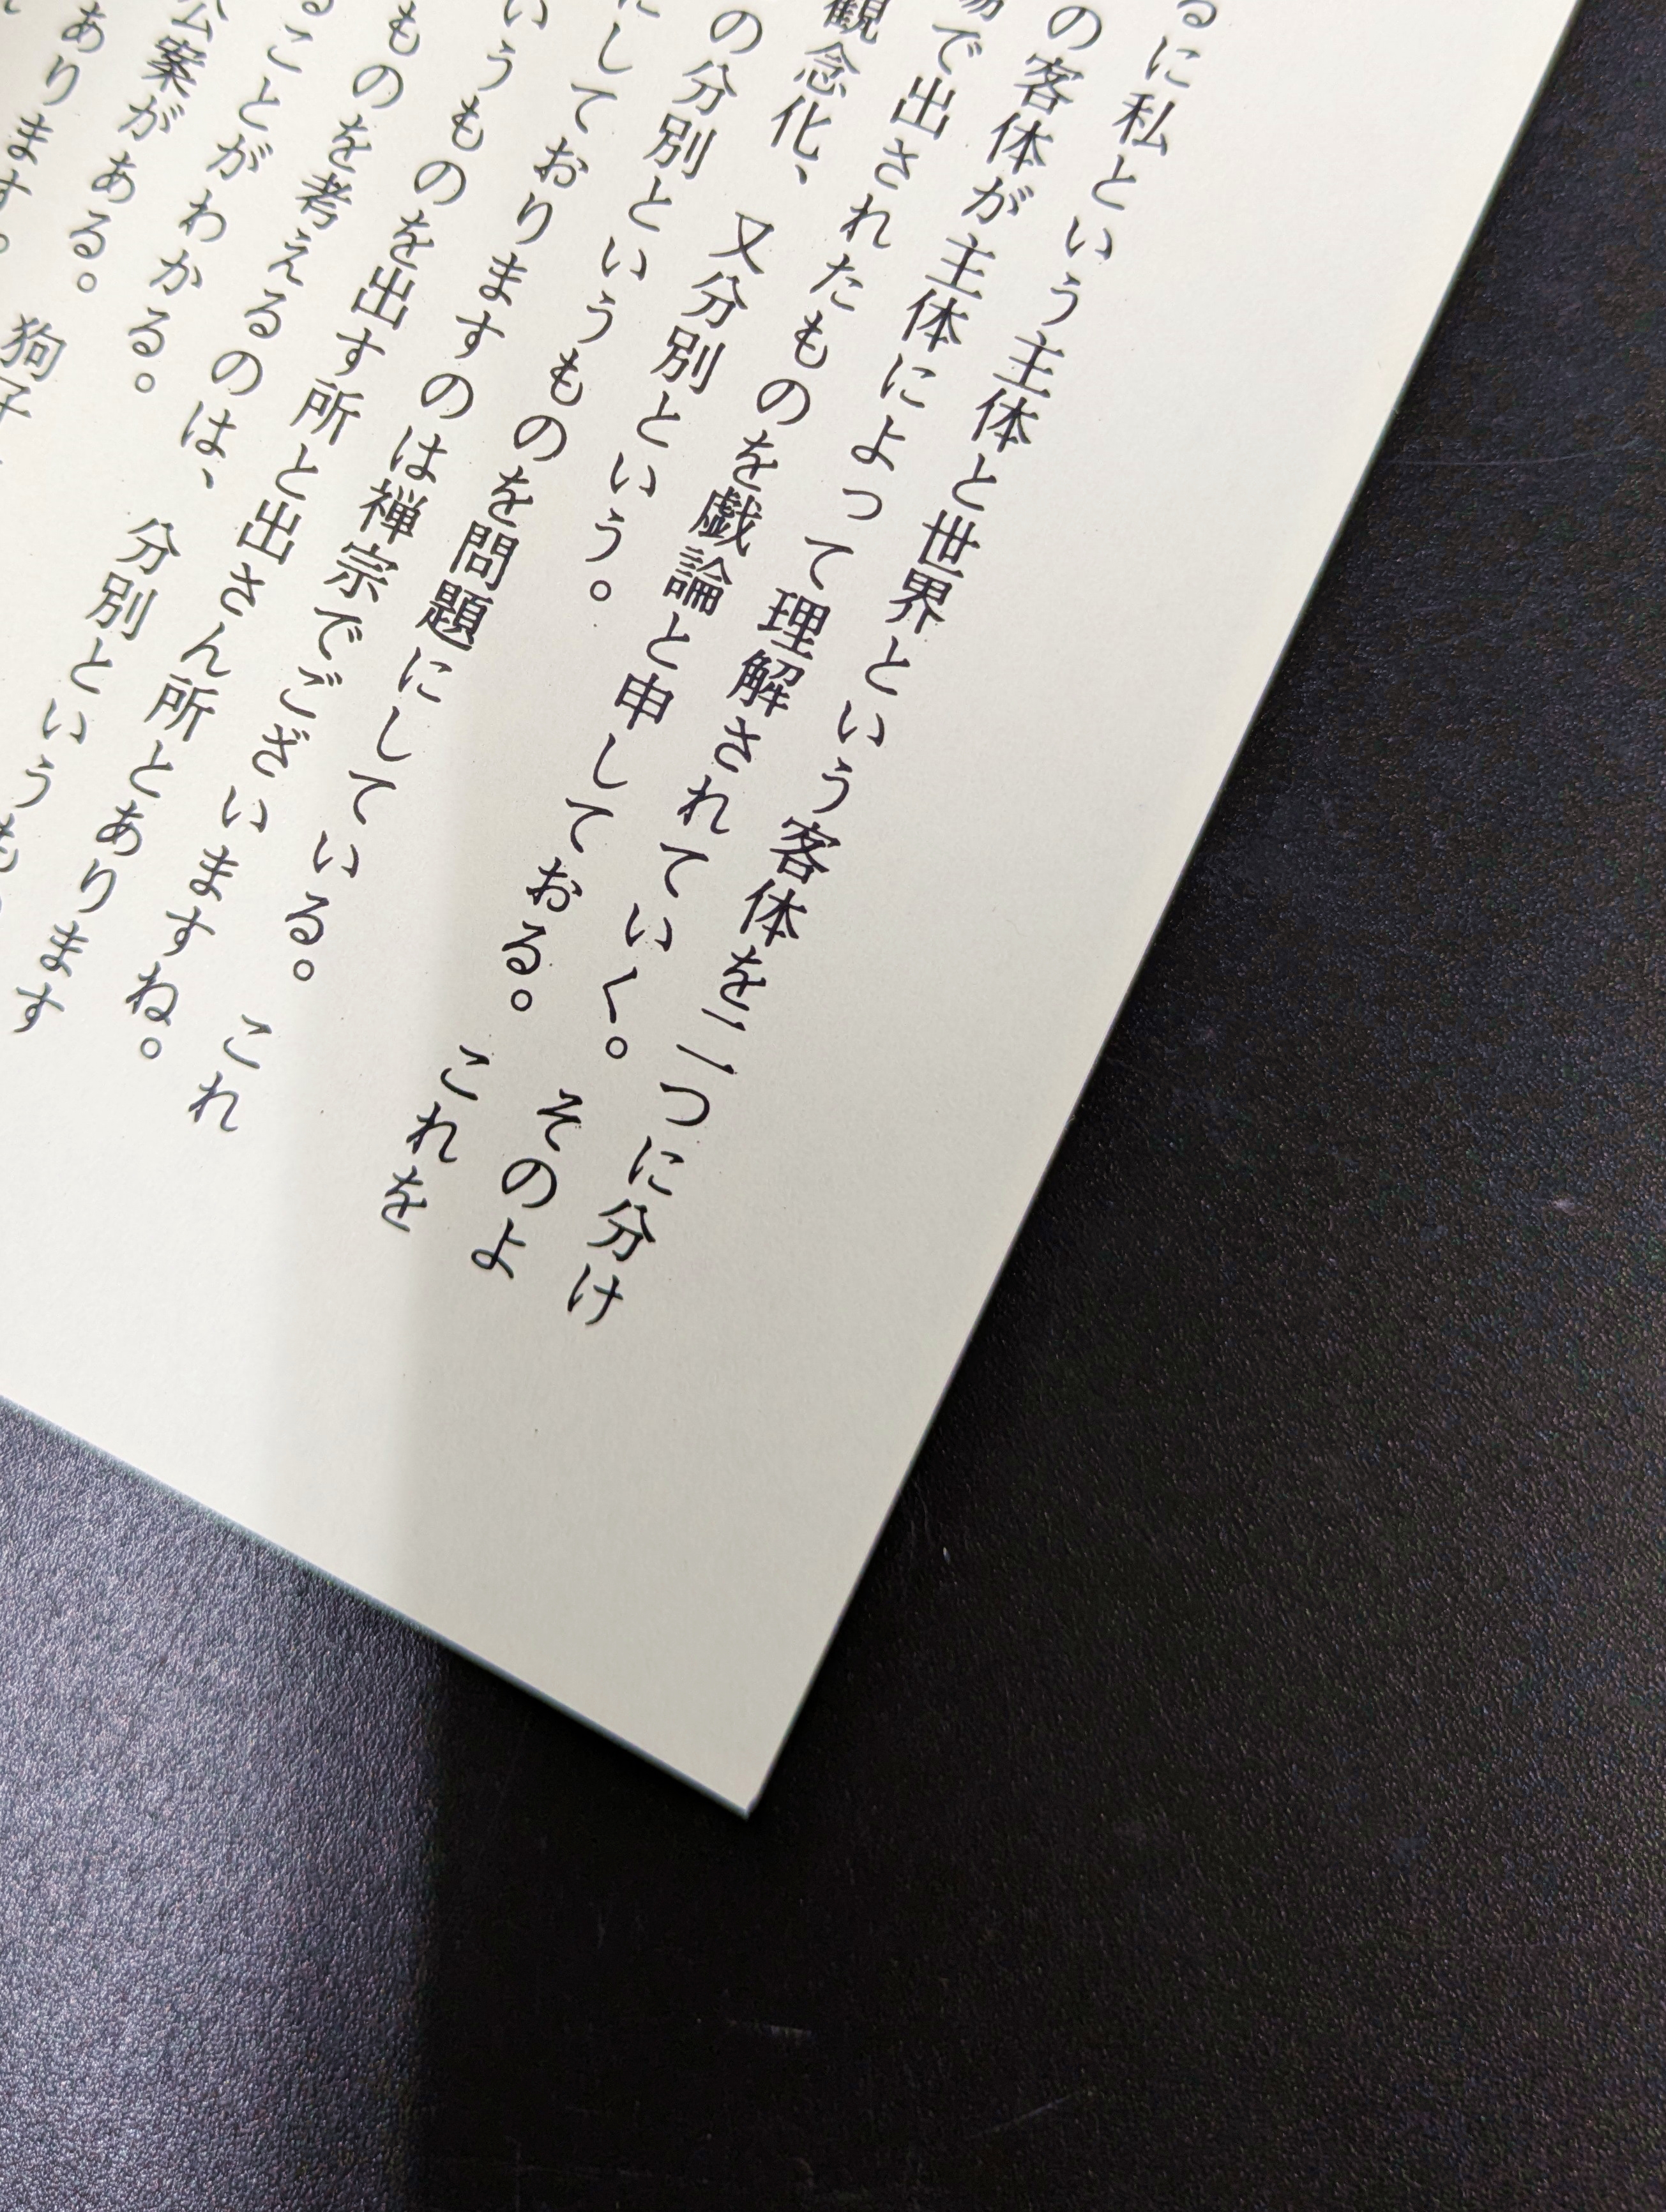 るに私という主体と世界という客体を二つに分け
の客体が主体によって理解されていく。そのよ
で出されたものを戯論と申しておる。これを
観念化、又分別という。
の分別というものを問題にしている。これ
にしておりますのは禅宗でございますね。
いうものを出す所と出さん所とあります
ものを考えるのは、分別というも
ることがわかる。
公案がある。狗子
あります。